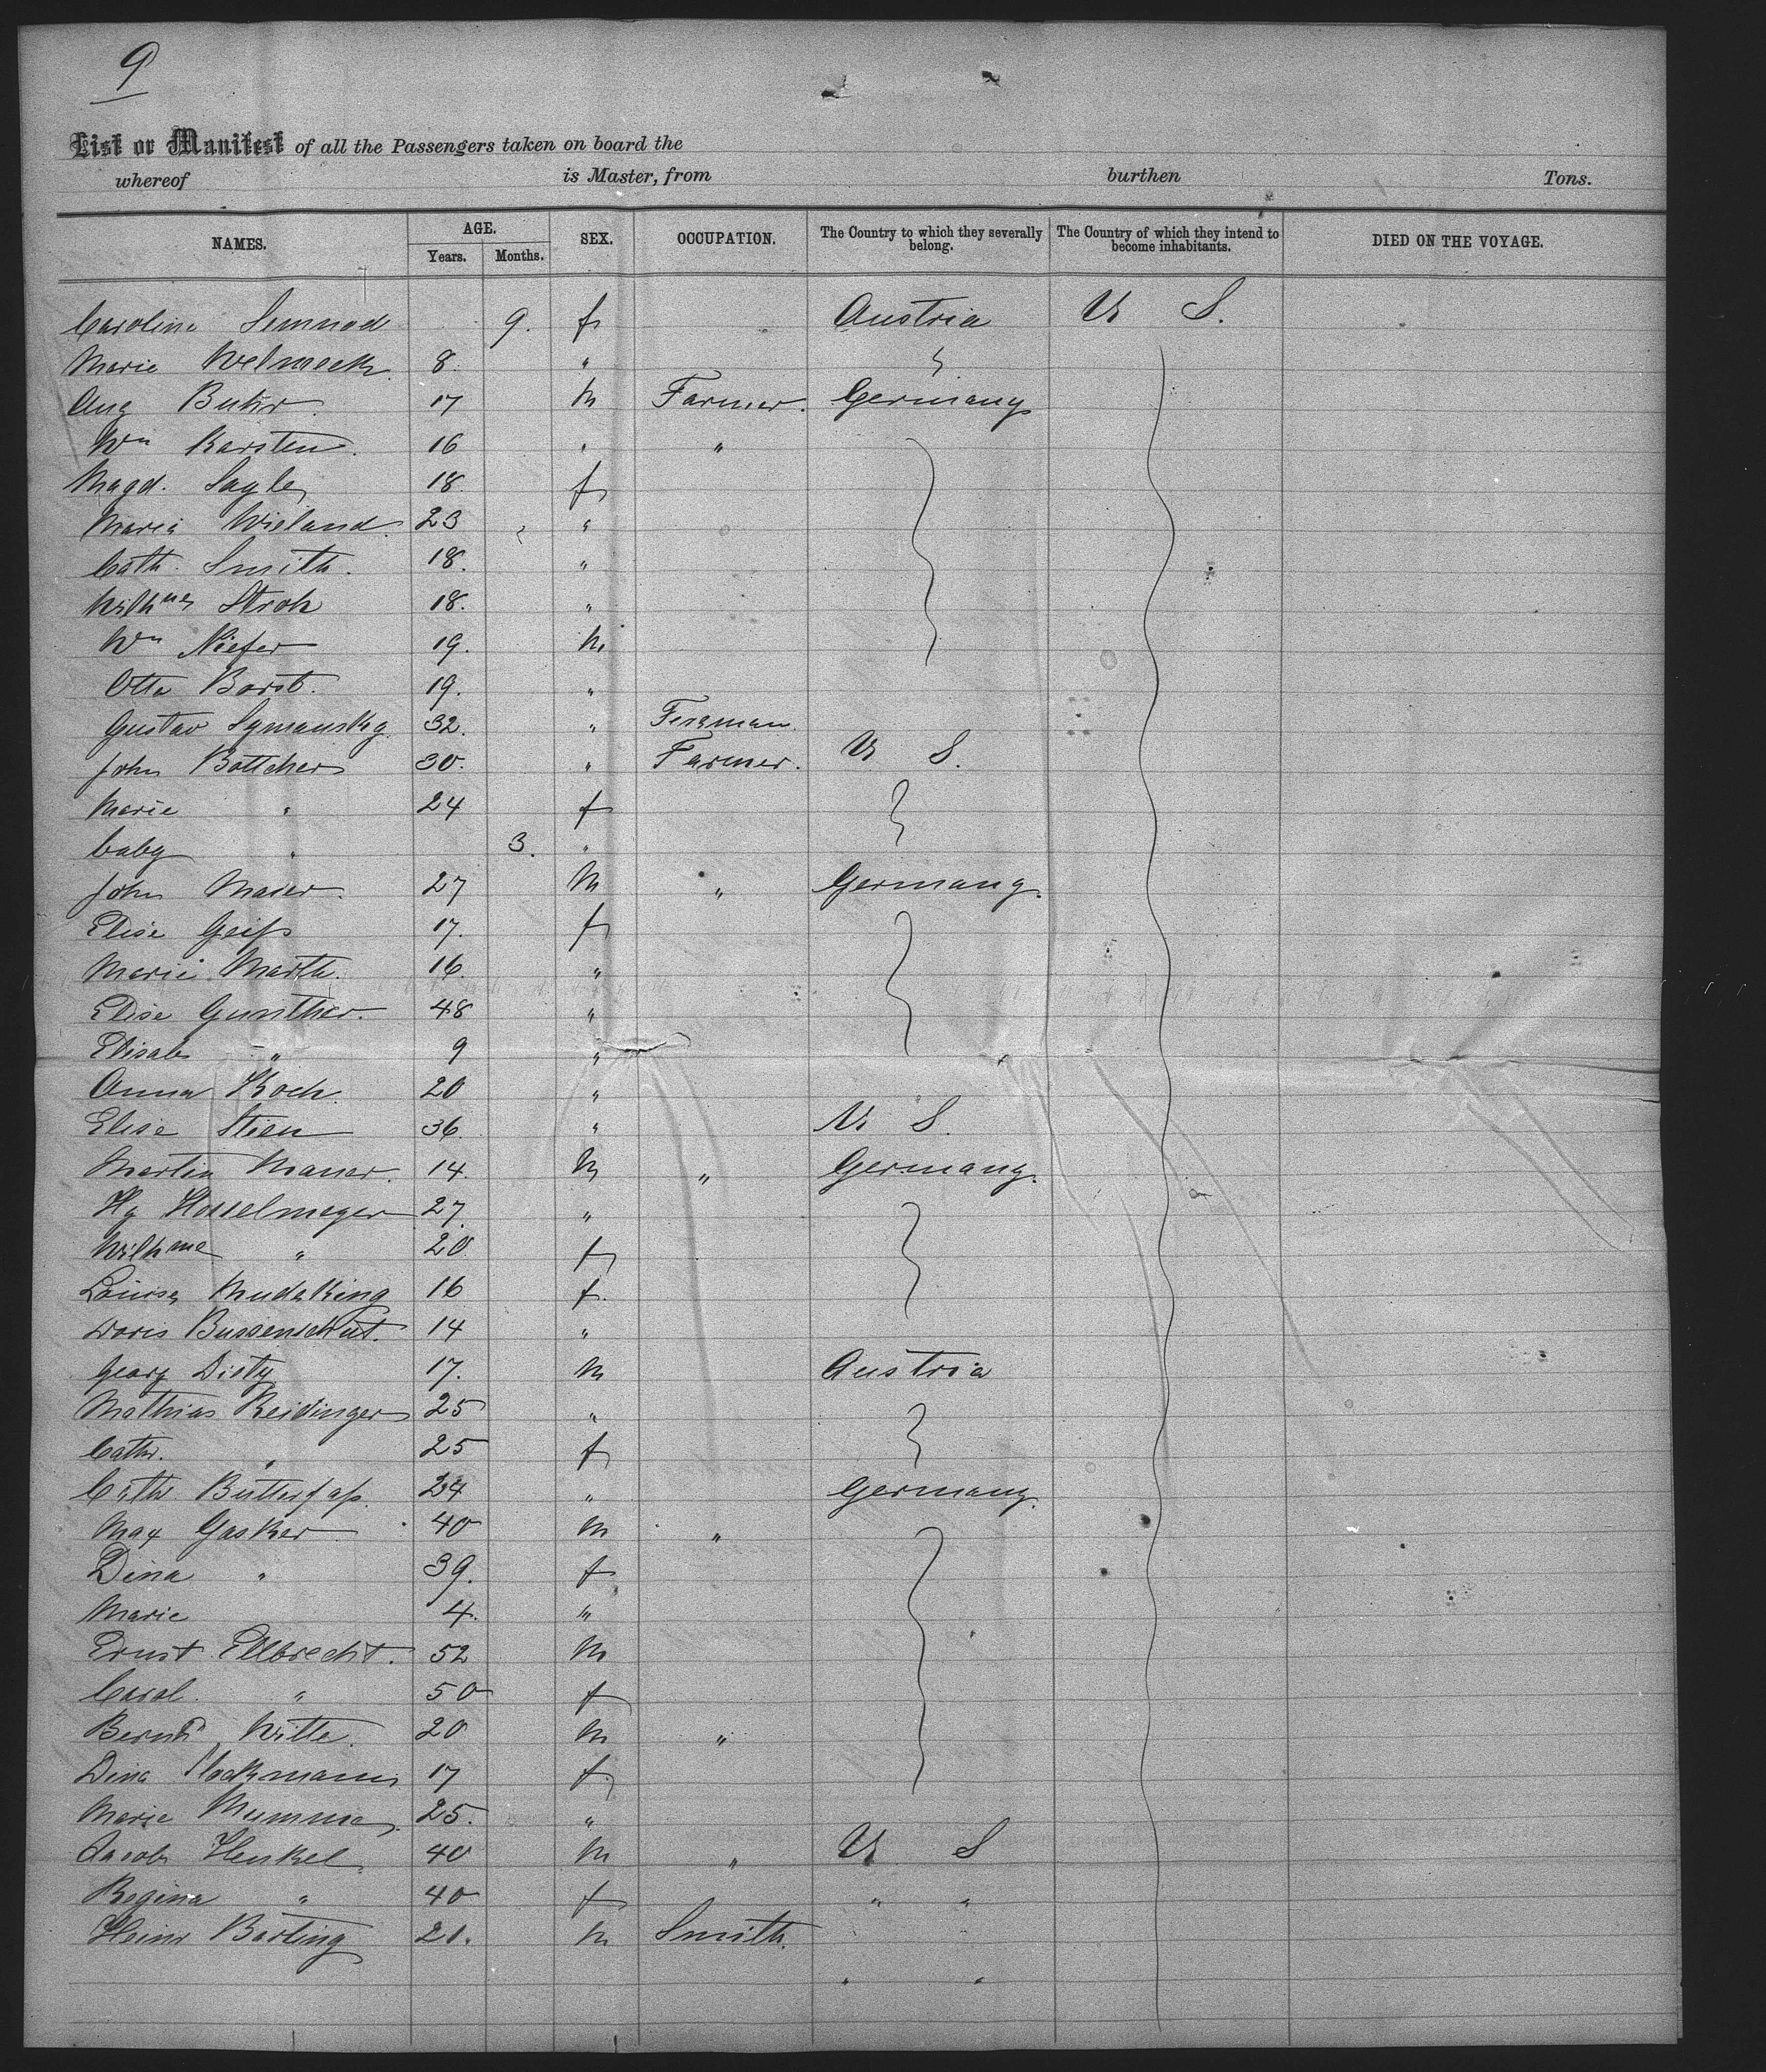 9
List or Manifest of all the Passengers taken on board the
whereof is Master, from burthen Tons.
NAMES. AGE. Years. Months. SEX. OCCUPATION. The Country to which they severally belong. The Country of which they intend to become inhabitants. DIED ON THE VOYAGE.
Carolina 9. f Austria U S.
Marie 8. "
Aug Buhr. 17 M Farmer. Germany
Wm Karsten. 16 " "
Magd. Sayle 18. f
Maria Wieland. 23 "
Cath. Smith. 18. "
Wilhne Stroh 18. "
Wm Kiefer 19. M
Otto Borst. 19. "
Gustav Symansky 32. "
John Bottcher 30. " Farmer. U S.
Marie " 24 f
baby " 3. "
John Maier. 27 M " Germany.
Elise Geiss 17. f
Marie Marth. 16. "
Elise Gunther. 48 "
Elisab " 9 "
Anna Koch. 20 "
Elise Stien 36. " U S.
Martin Maurer. 14. M " Germany.
Hy Hasselmeyer 27. "
Wilhme " 20. f
Louise Mudeking 16 f.
Doris Bussenschut. 14 "
Georg Disty 17. M Austria
Mathias Reidinger 25 "
Cath. " 25 f
Cath. Butterfass. 24 " Germany.
Max Gasker 40 M "
Dina " 39. f
Marie 4. "
Ernst Ellbrecht. 52 M
Carol. " 50 f
Bernhd Witte. 20 M "
Dina 17 f
Marie Mumma. 25. "
Jacob Henkel. 40 M " U S
Regina " 40 f " "
Heinr Barting 21. M Smith.
" "